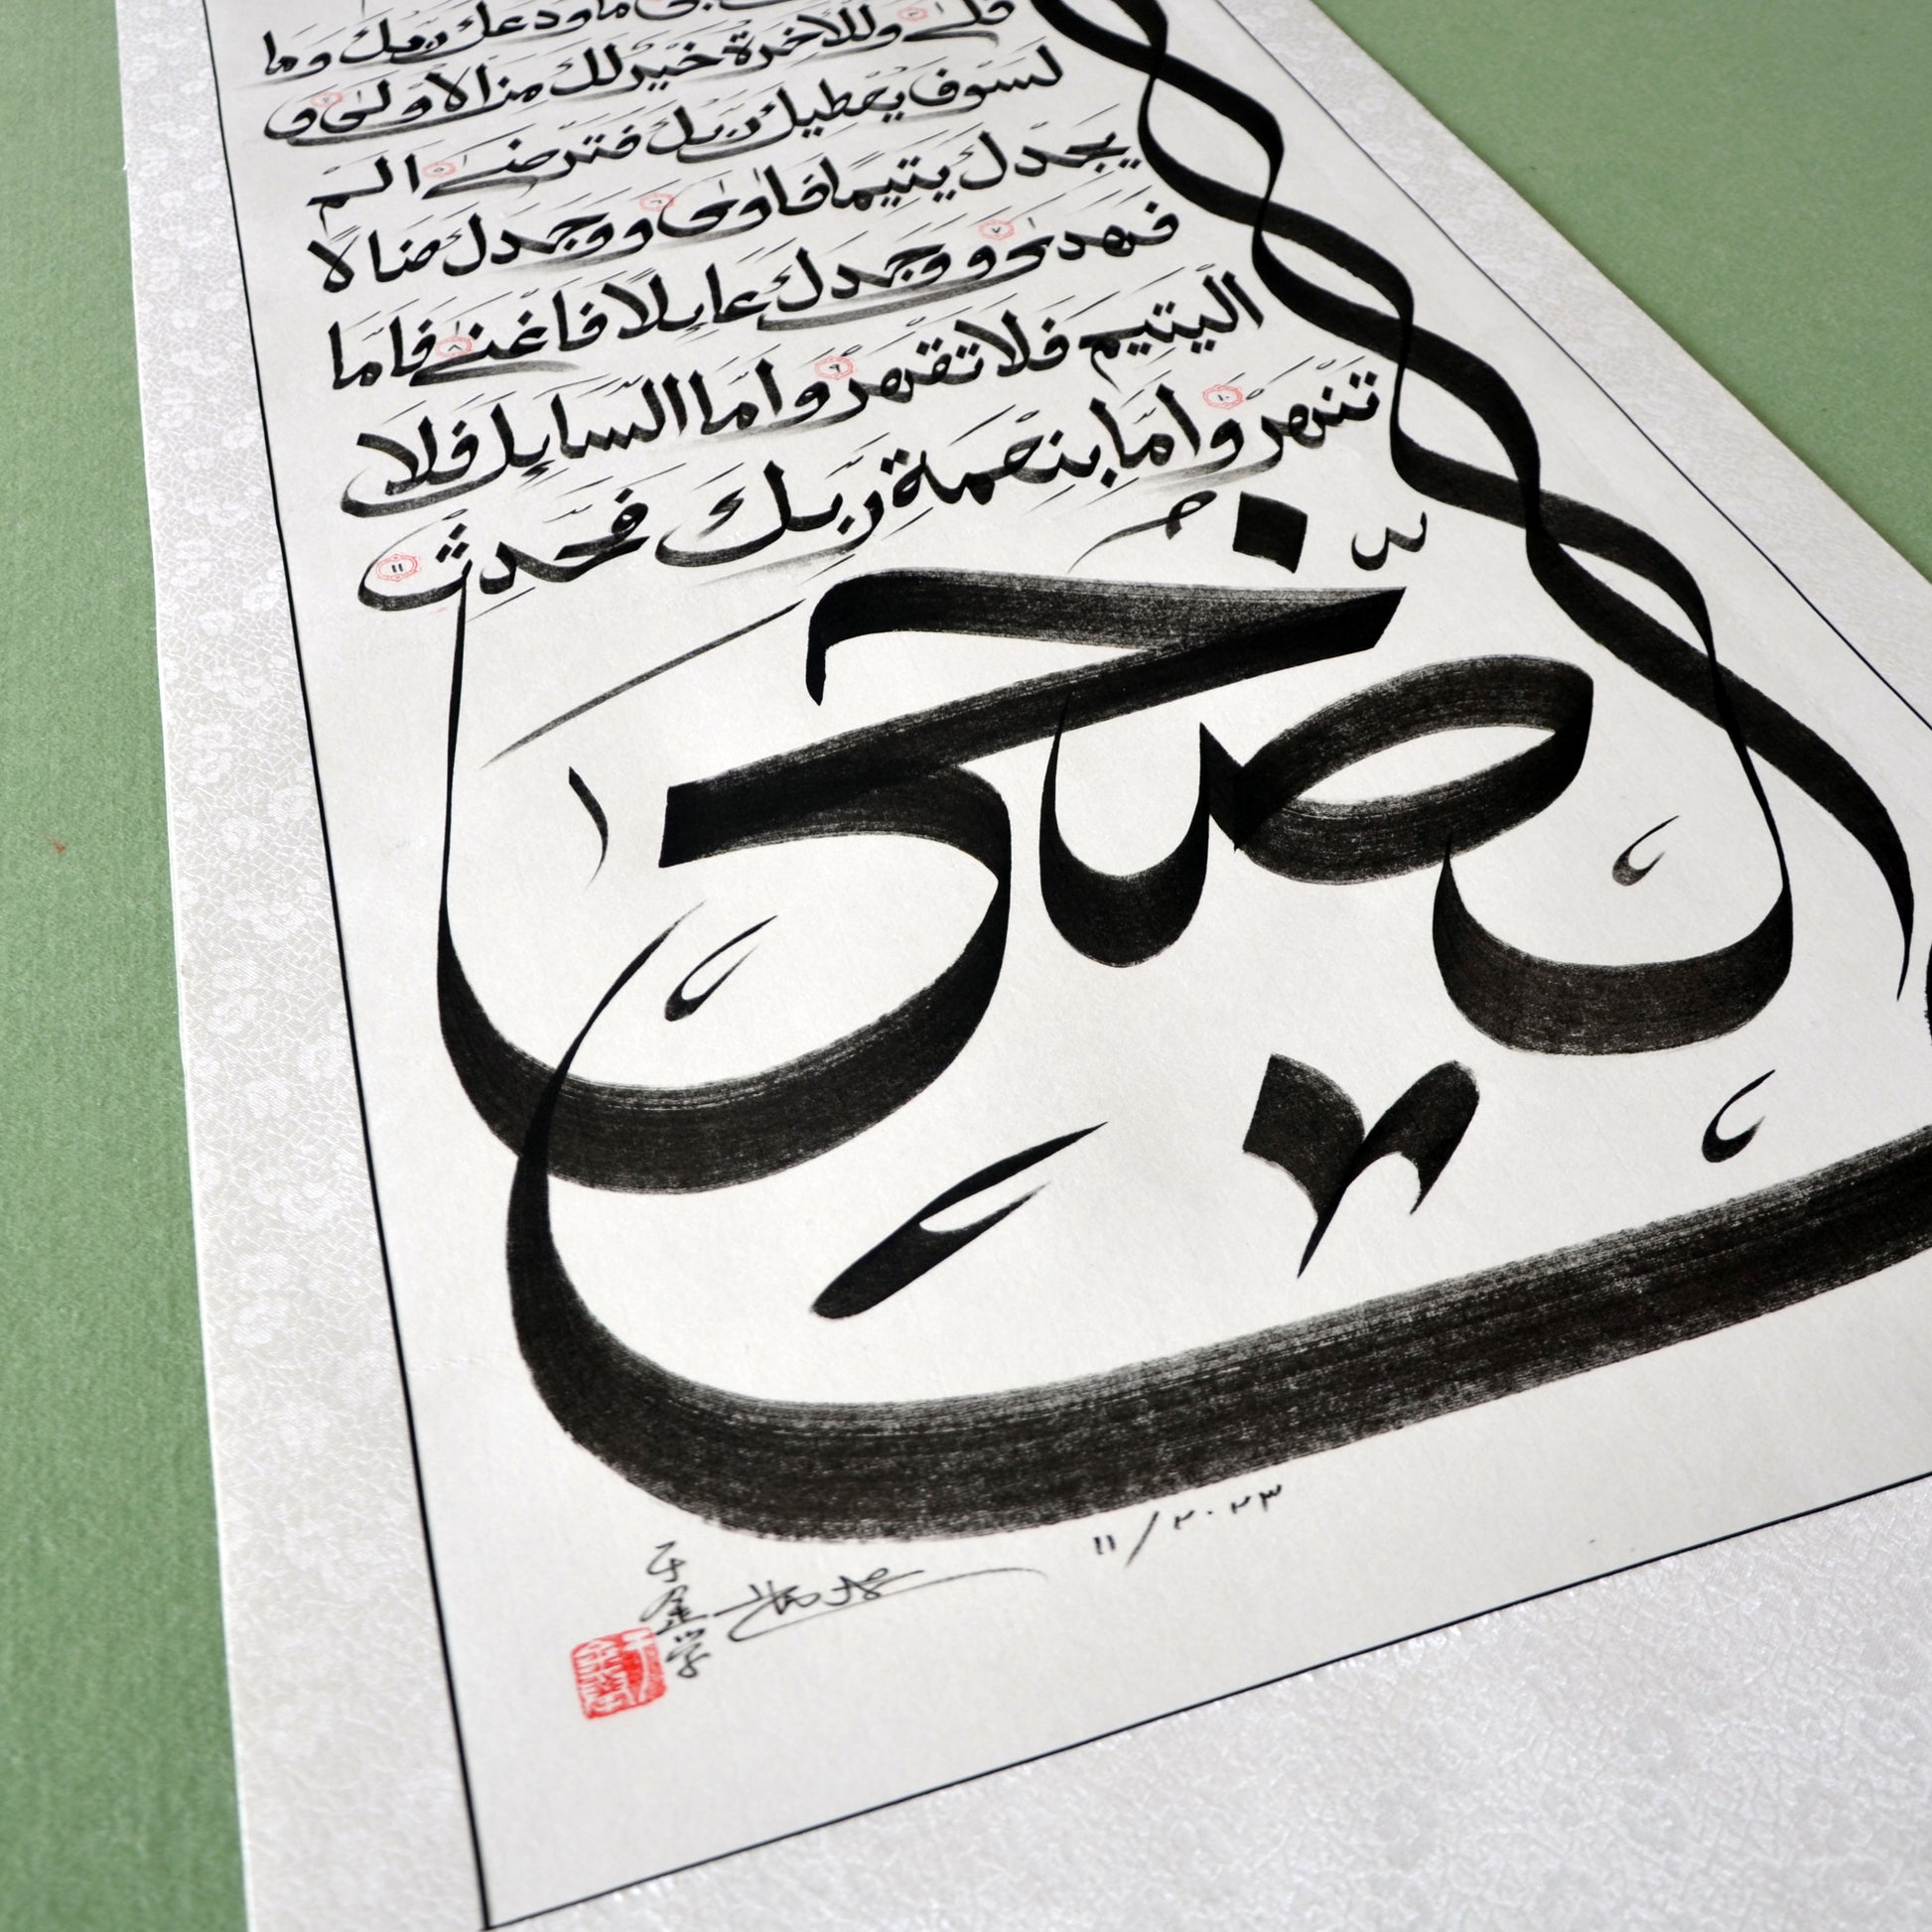 ما ودعك ربك وما
قلى ٣ وللاخرة خير لك من الاولى ٤ و
لسوف يعطيك ربك فترضى ٥ الم
يجدك يتيما فاوى ٦ ووجدك ضالا
فهدى ٧ ووجدك عايلا فاغنى ٨ فاما
اليتيم فلا تقهر ٩ واما السايل فلا
تنهر ١٠ واما بنعمة ربك فحدث ١١
الضحى
١١/٢٠٢٣